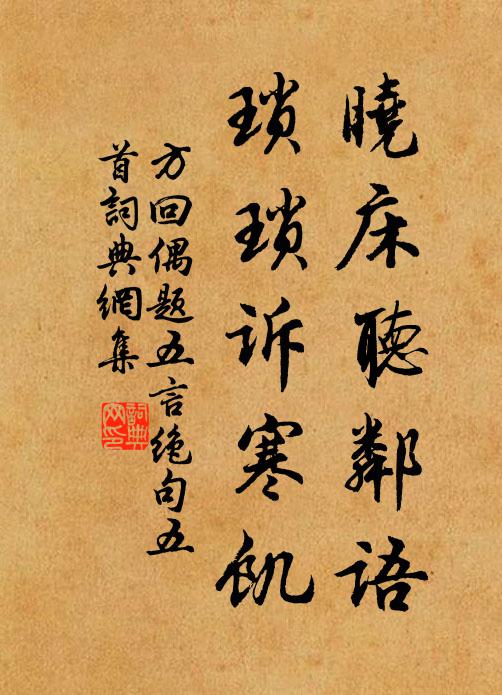 曉床聽鄰語
瑣瑣訴寒飢
方回偶题五言绝句五
首詞典網集
詞典
网印